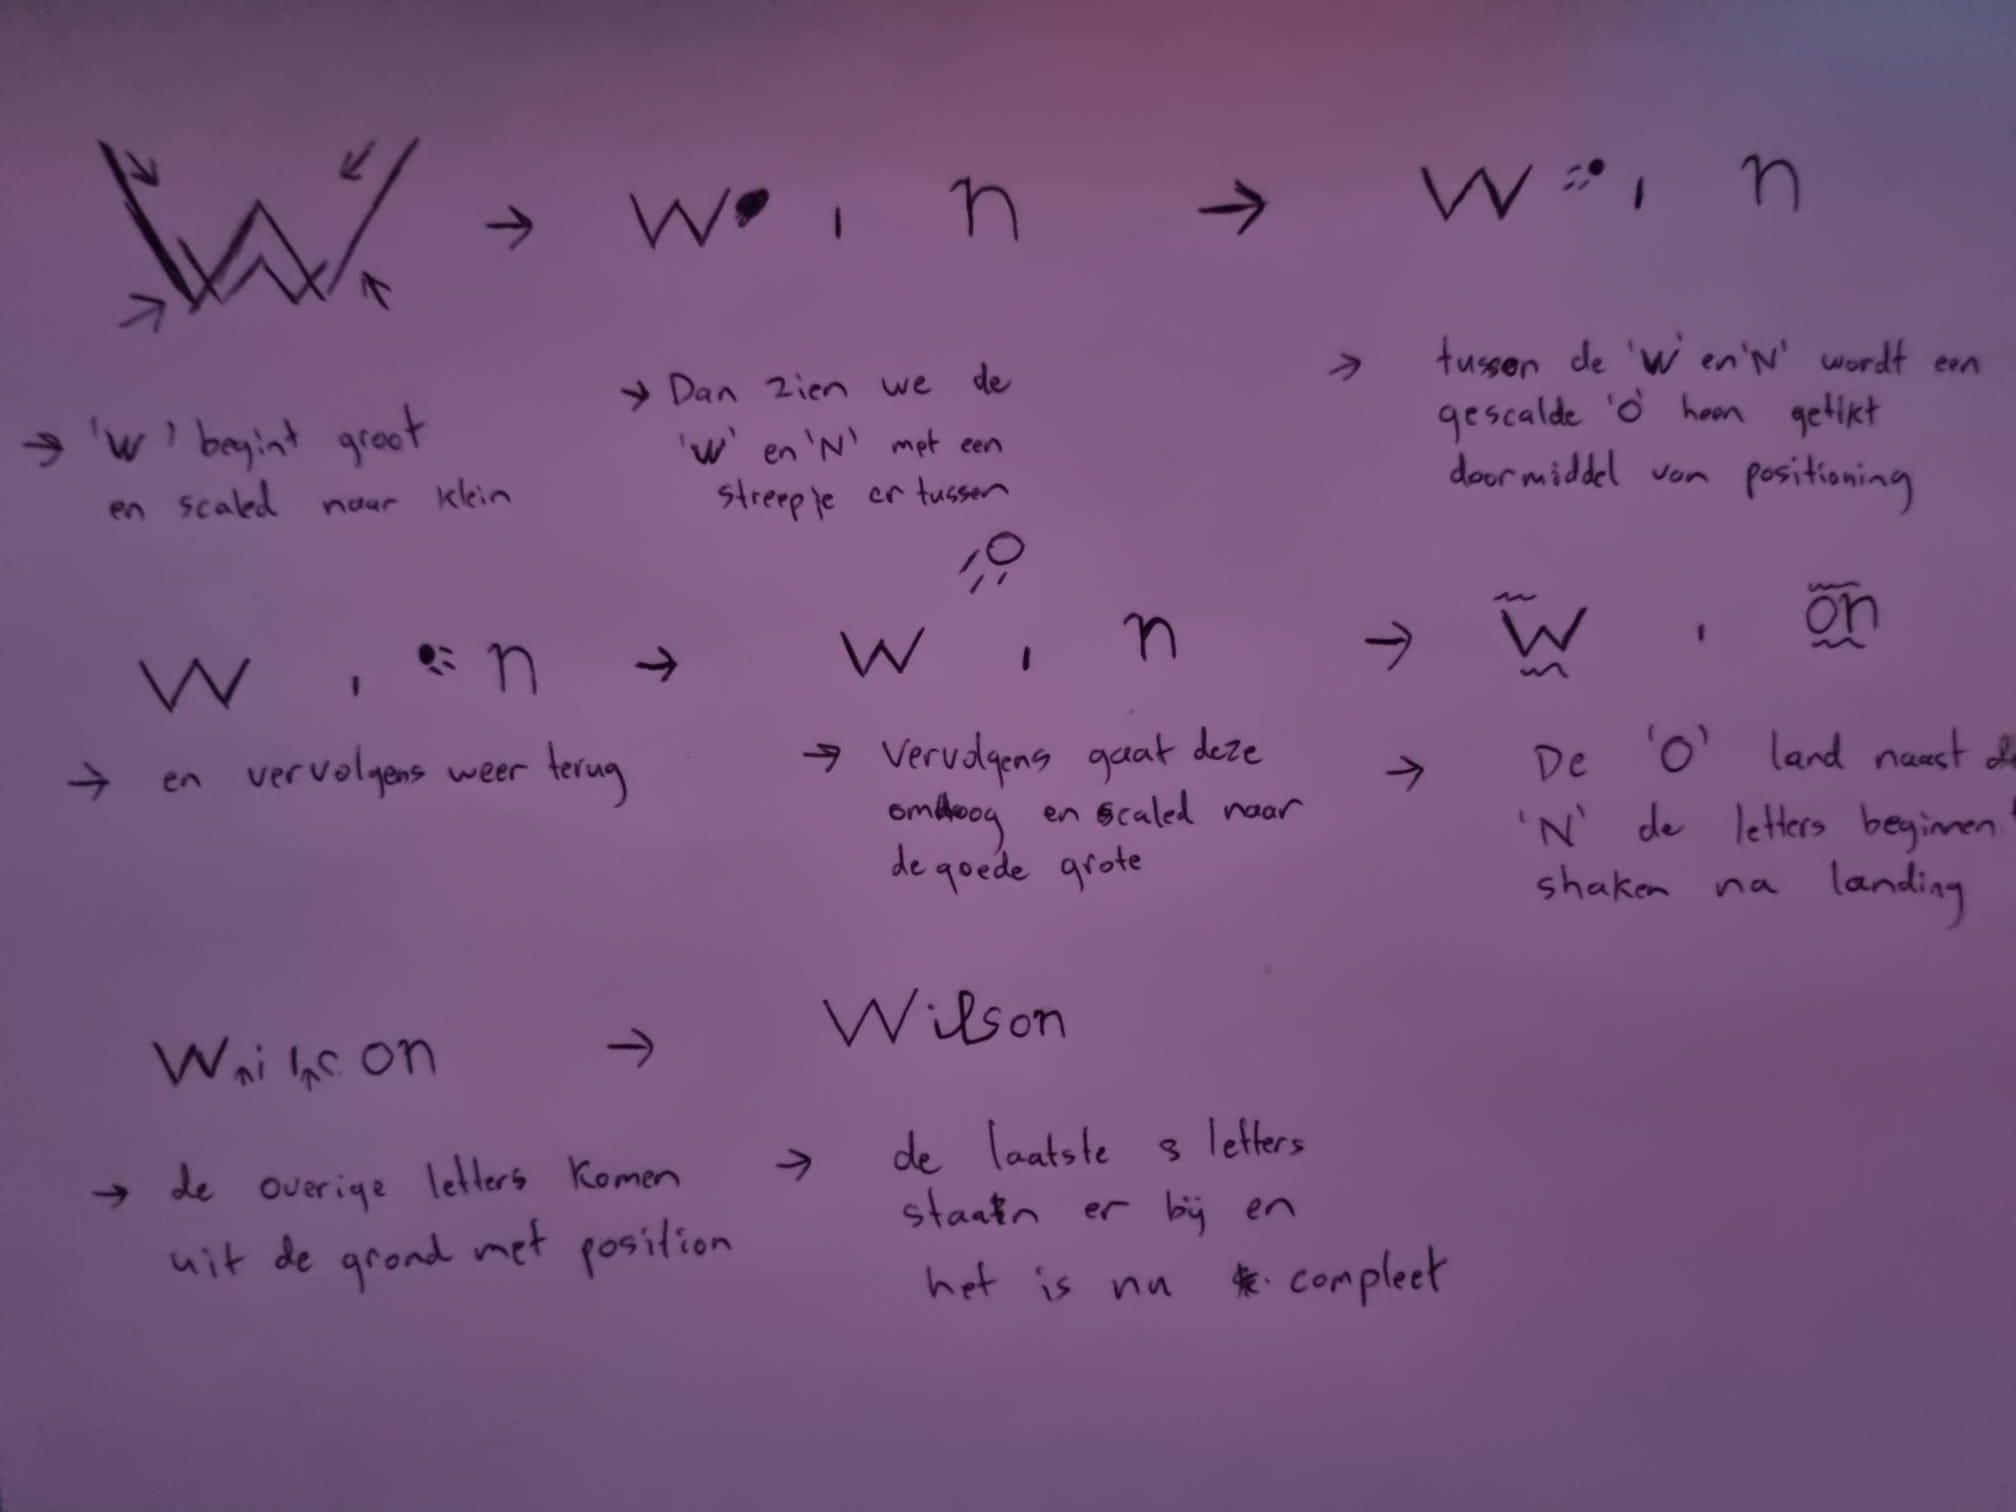 W → W , n → W , n
→ 'W' begint groot
en scaled naar klein
→ Dan zien we de
'W' en 'N' met een
streepje er tussen
→ tussen de 'W' en 'N' wordt een
gescalde 'O' heen getikt
doormiddel van positioning
W , n → W , n → W , on
→ en vervolgens weer terug
→ vervolgens gaat deze
omhoog en scaled naar
de goede grote
→ De 'O' land naast de
'N' de letters beginnen
shaken na landing
W i l s on → Wilson
→ de overige letters komen
uit de grond met position
→ de laatste 3 letters
staan er bij en
het is nu compleet